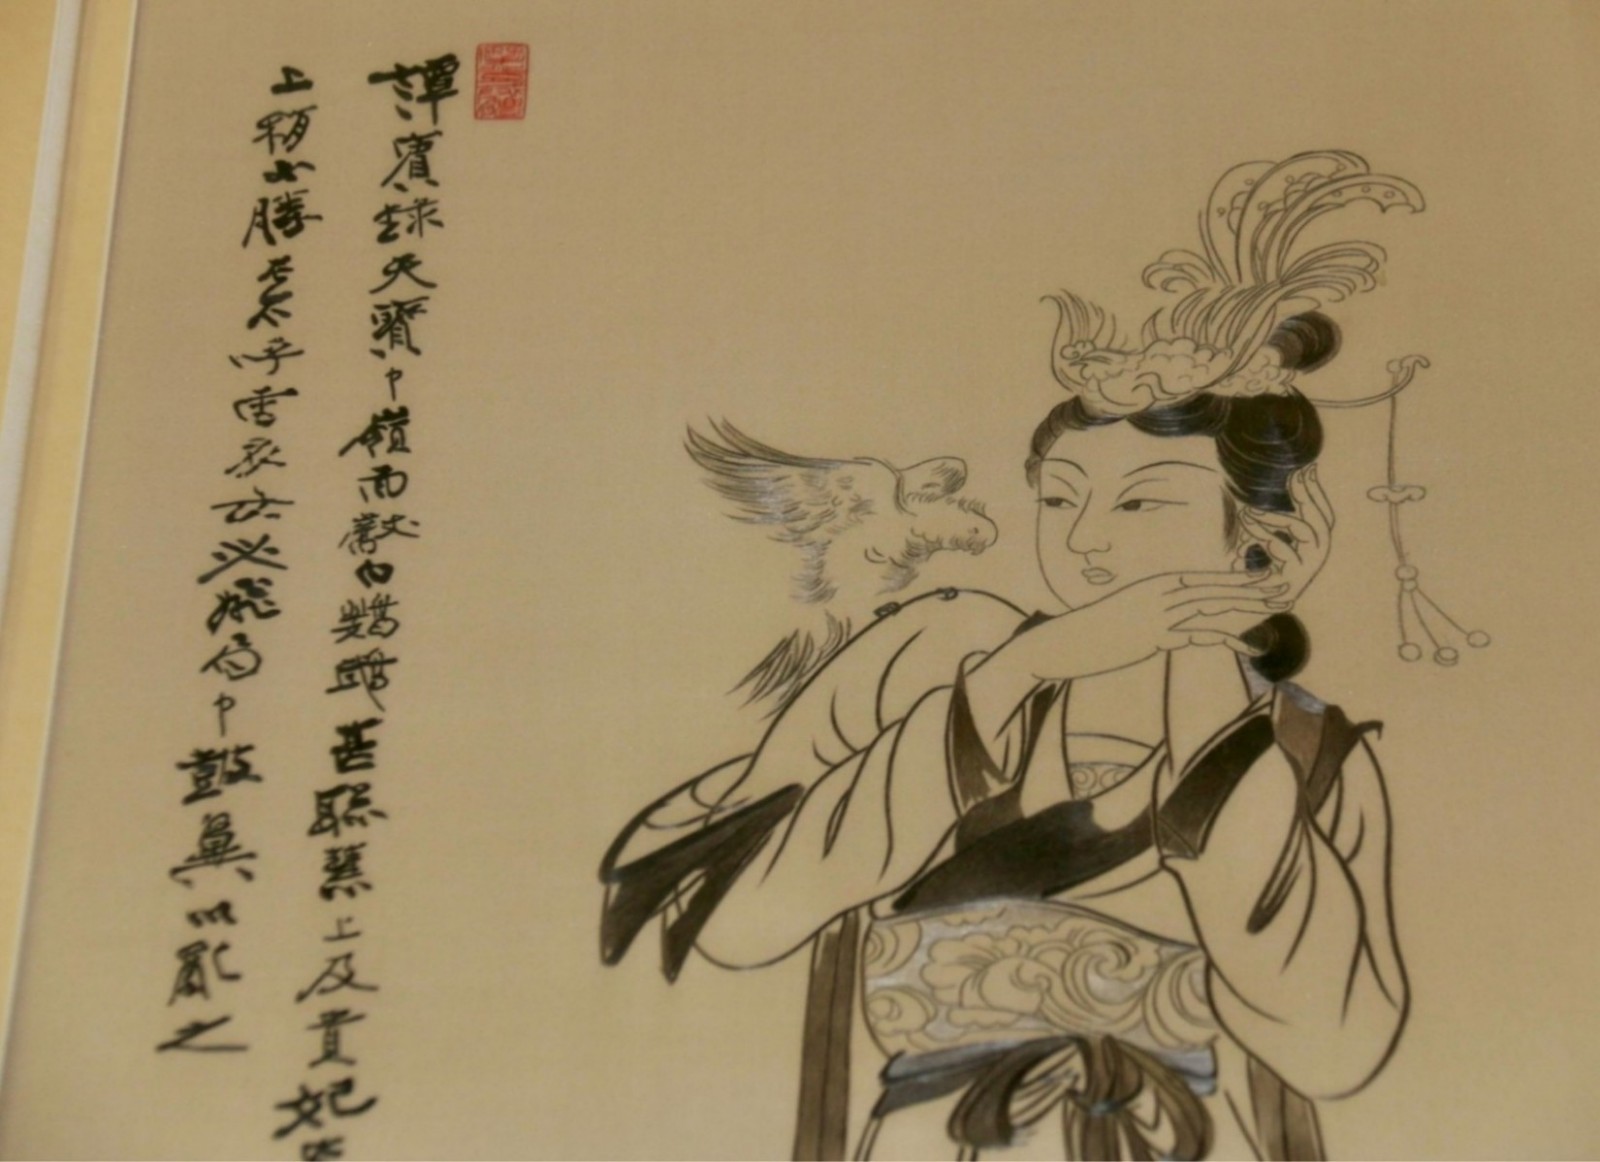 譚賓録天寶中嶺南獻白鸚鵡甚聰慧上及貴妃
上稍不勝左右呼雪衣女必飛局中鼓翼以亂之